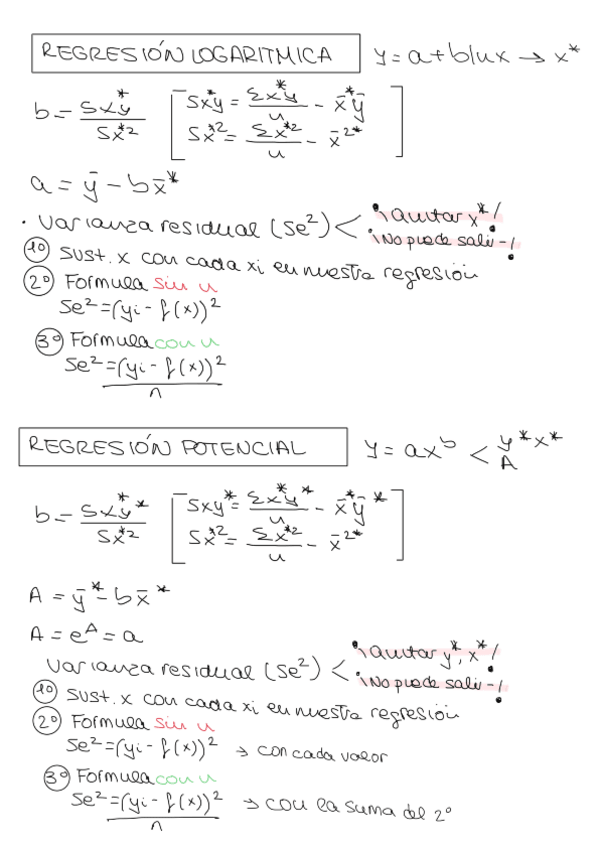 REGRESIÓN LOGARITMICA y = a + b lnx → x*
b = Sx*y / Sx*² [ Sx*y = Σx*y / n - x̄*ȳ
Sx*² = Σx*² / n - x̄²* ]
a = ȳ - b x̄*
· Varianza residual (Se²) < ¡quitar x*!
¡No puede salir -!
1º Sust. x con cada xi en nuestra regresión
2º Formula sin n
Se² = (yi - f(x))²
3º Formula con n
Se² = (yi - f(x))² / n
REGRESIÓN POTENCIAL y = ax^b < y* x*
A
b = Sx*y* / Sx*² [ Sxy* = Σx*y* / n - x̄*ȳ*
Sx*² = Σx*² / n - x̄²* ]
A = ȳ* - b x̄*
A = e^A = a
Varianza residual (Se²) < ¡quitar y*, x*!
¡No puede salir -!
1º Sust. x con cada xi en nuestra regresión
2º Formula sin n
Se² = (yi - f(x))² → con cada valor
3º Formula con n
Se² = (yi - f(x))² / n → con la suma del 2º